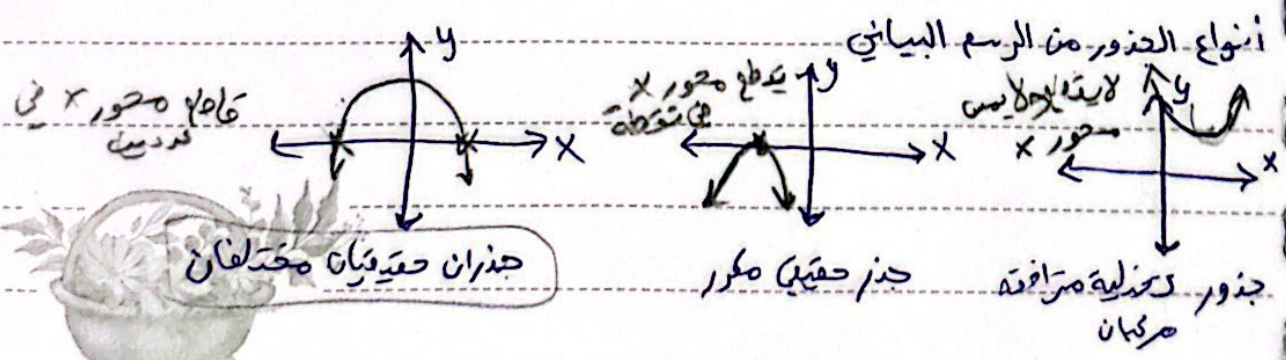 أنواع الجذور من الرسم البياني
y
لا يقطع ولا يمس
محور x
x
جذور تخيلية مترافقة
مركبان
y
يقطع محور x
في نقطة
x
جذر حقيقي مكرر
y
قاطع محور x في
عددين
x
جذران حقيقيان مختلفان